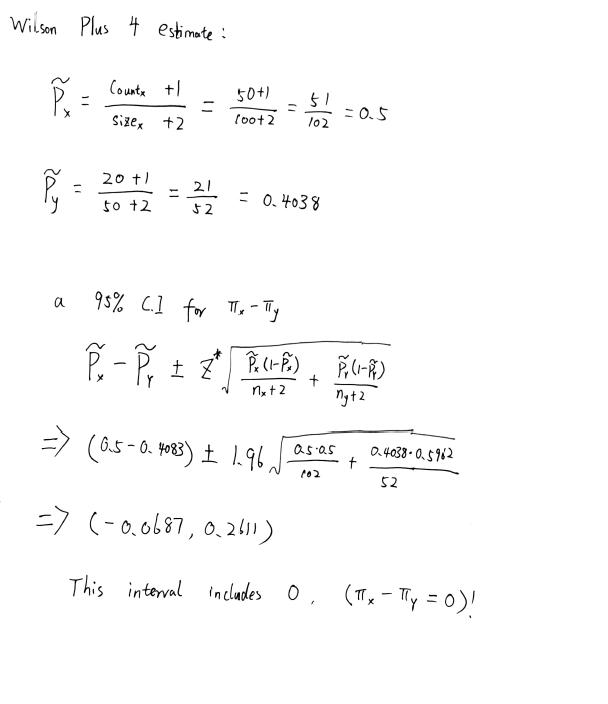 Wilson Plus 4 estimate:
P̃ₓ = (Countₓ +1)/(Sizeₓ +2) = (50+1)/(100+2) = 51/102 = 0.5
P̃ᵧ = (20 +1)/(50 +2) = 21/52 = 0.4038
a 95% C.I for πₓ - πᵧ
P̃ₓ - P̃ᵧ ± Z* √(P̃ₓ(1-P̃ₓ)/(nₓ+2) + P̃ᵧ(1-P̃ᵧ)/(nᵧ+2))
=> (0.5-0.4083) ± 1.96 √(0.5·0.5/102 + 0.4038·0.5962/52)
=> (-0.0687, 0.2611)
This interval includes 0, (πₓ - πᵧ = 0)!